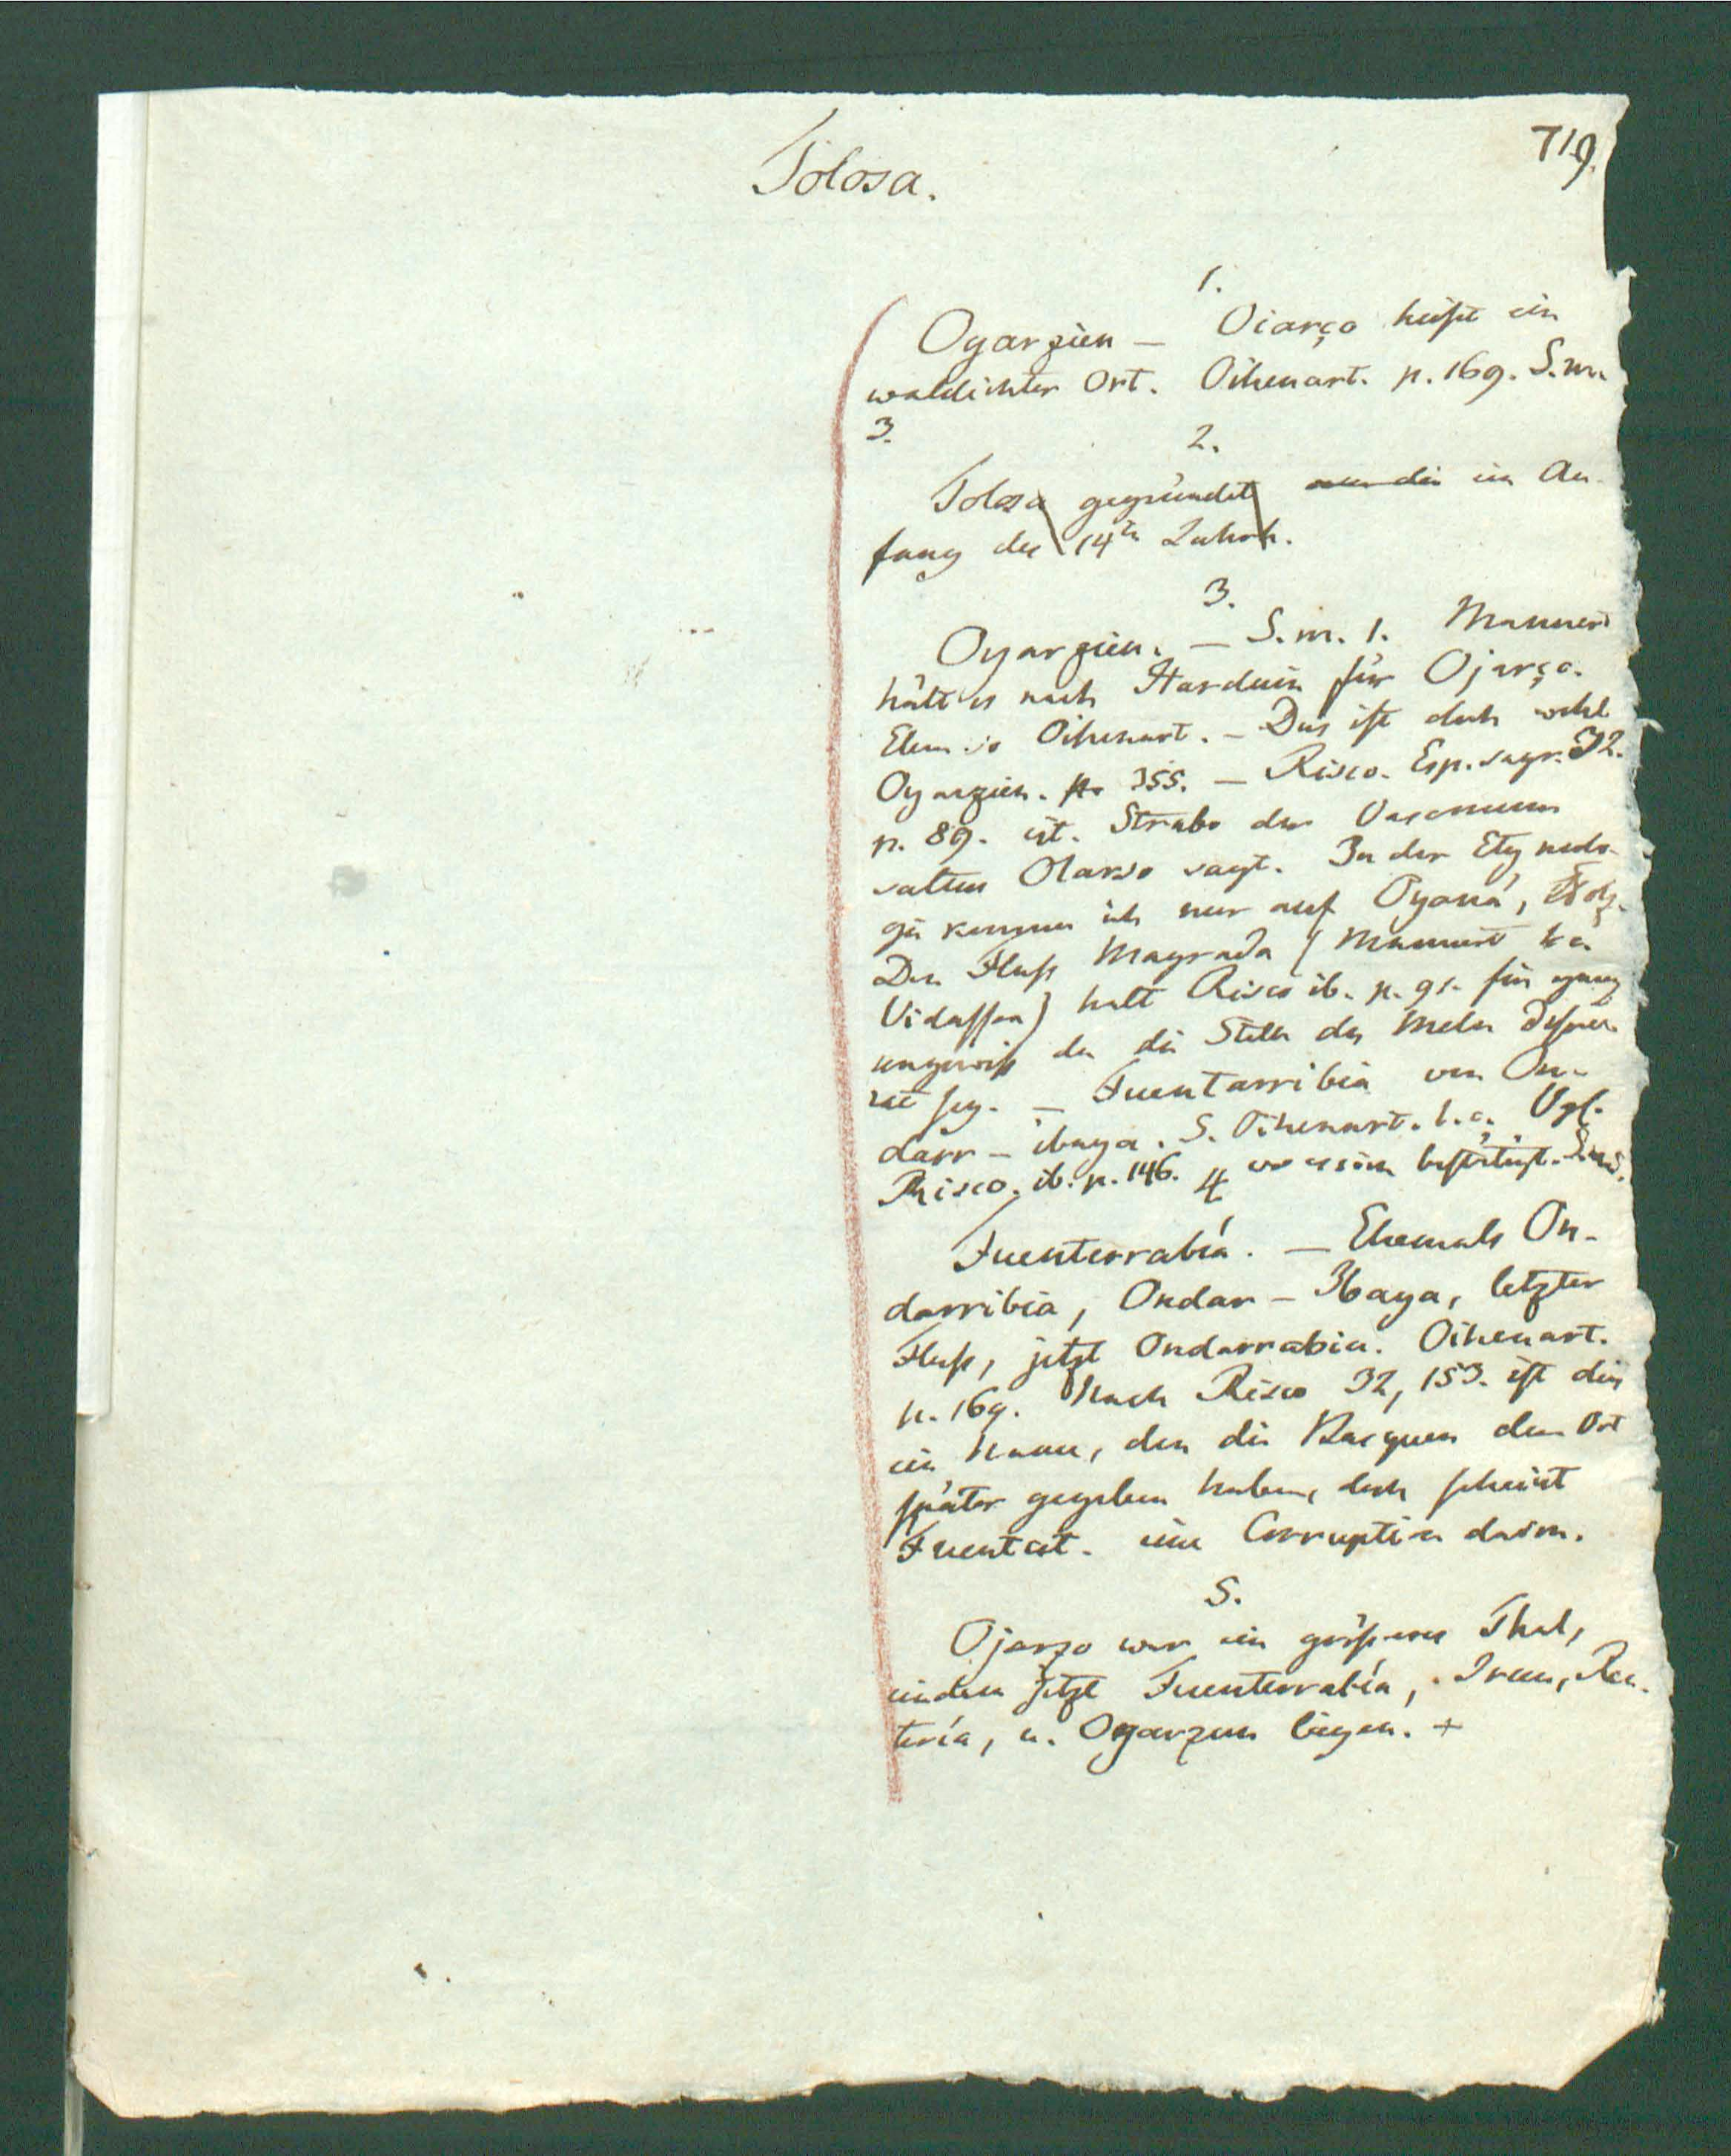 719.
Tolosa.
1.
Oyarzien – Oiarço heißt ein
waldichter Ort. Oihenart. p. 169. S. m.
3.
2.
Tolosa gegründet im An-
fang des 14ten Jahrh.
3.
Oyarzien. – S. m. 1. Mannert
hält es nach Harduin für Ojarço.
Oihenart. – Dies ist doch wohl
Oyarzien. p. 355. – Risco. Esp. sagr. 32.
p. 89. cit. Strabo der Vasconum
saltus Olarso sagt. In der Etymolo-
gie kommen ich nur auf Oyana, Holz.
Den Fluß Magrada (Mannert
Vidassoa) hält Risco ib. p. 91. für ganz
ungewiß da die Stelle des Mela
sey. – Fuentarribia von On-
darr – ibaya. S. Oihenart. l. c. Vgl.
Risco. ib. p. 146. wo es ihm bestätigt.
4
Fuenterrabía. – Ehemals On-
darribia, Ondar – Ibaya, letzter
Fluß, jetzt Ondarrabia. Oihenart.
p. 169. Nach Risco 32, 153. ist dies
ein Name, den die Basquen dem Ort
später gegeben haben, doch scheint
Fuent eine Corruption davon.
5.
Ojarzo war ein größeres Thal,
in dem jetzt Fuenterrabía, Irun, Ren-
tería, u. Oyarzun liegen. +